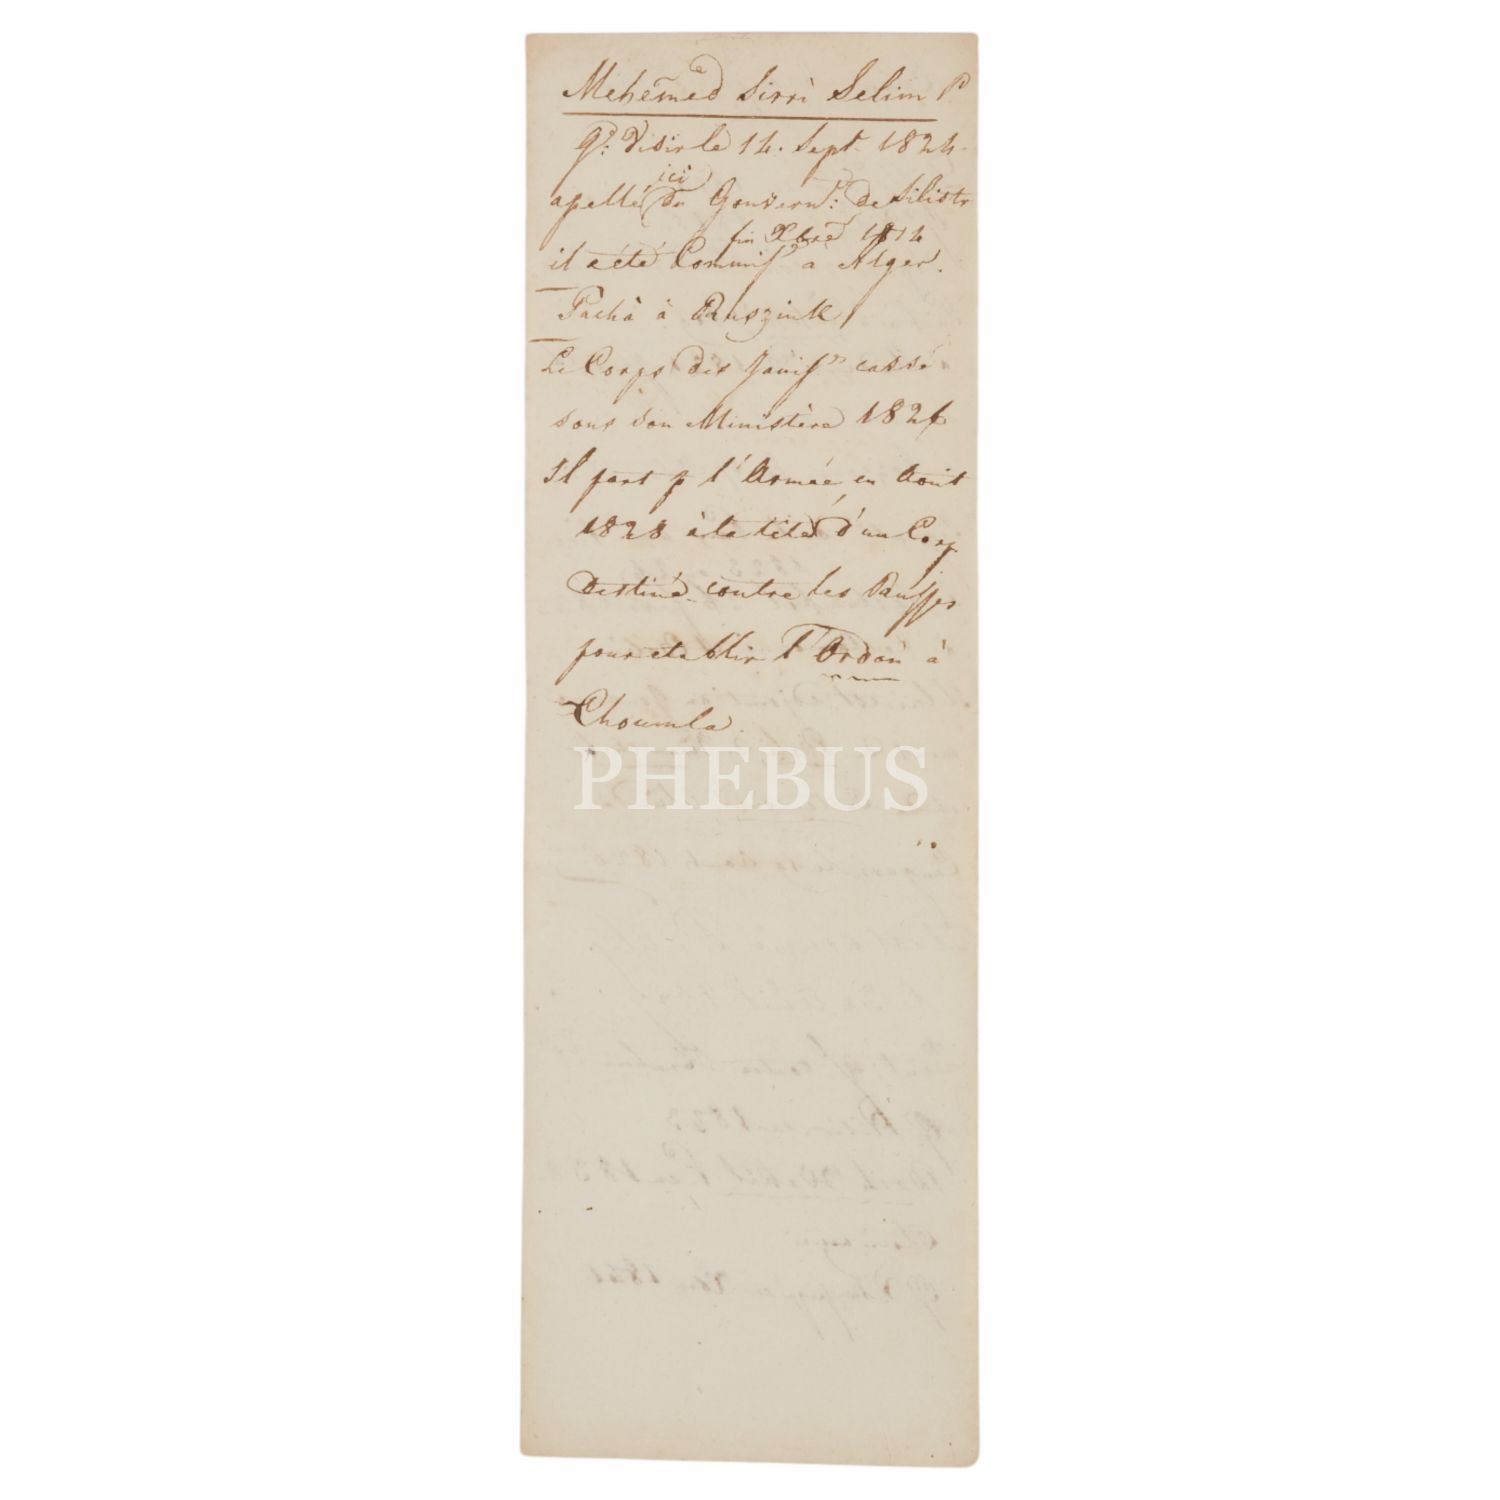 Mehemed Sirri Selim P
gd: Visir le 14. Sept. 1824.
ici
apellé du Gouvernt: de Silistr
fin Xbre 1814
il a été Commisse a Alger.
Pachà à Rouszink
Le Corps des Janisres cassé
sous son Ministère 1826
Il part p l'Armée en Aout
1828 à la tête d'un Corp
destiné contre les Russes
pour etablir l'Ordoù à
Choumla.
PHEBUS